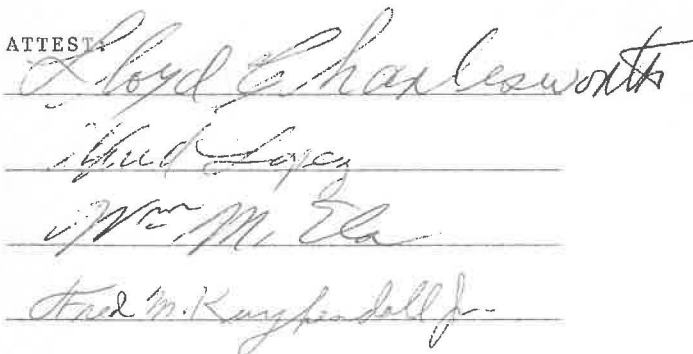 ATTEST:
Lloyd Charlesworth
Lopez
Wm M. Ela
Fred M. Kuykendall Jr.